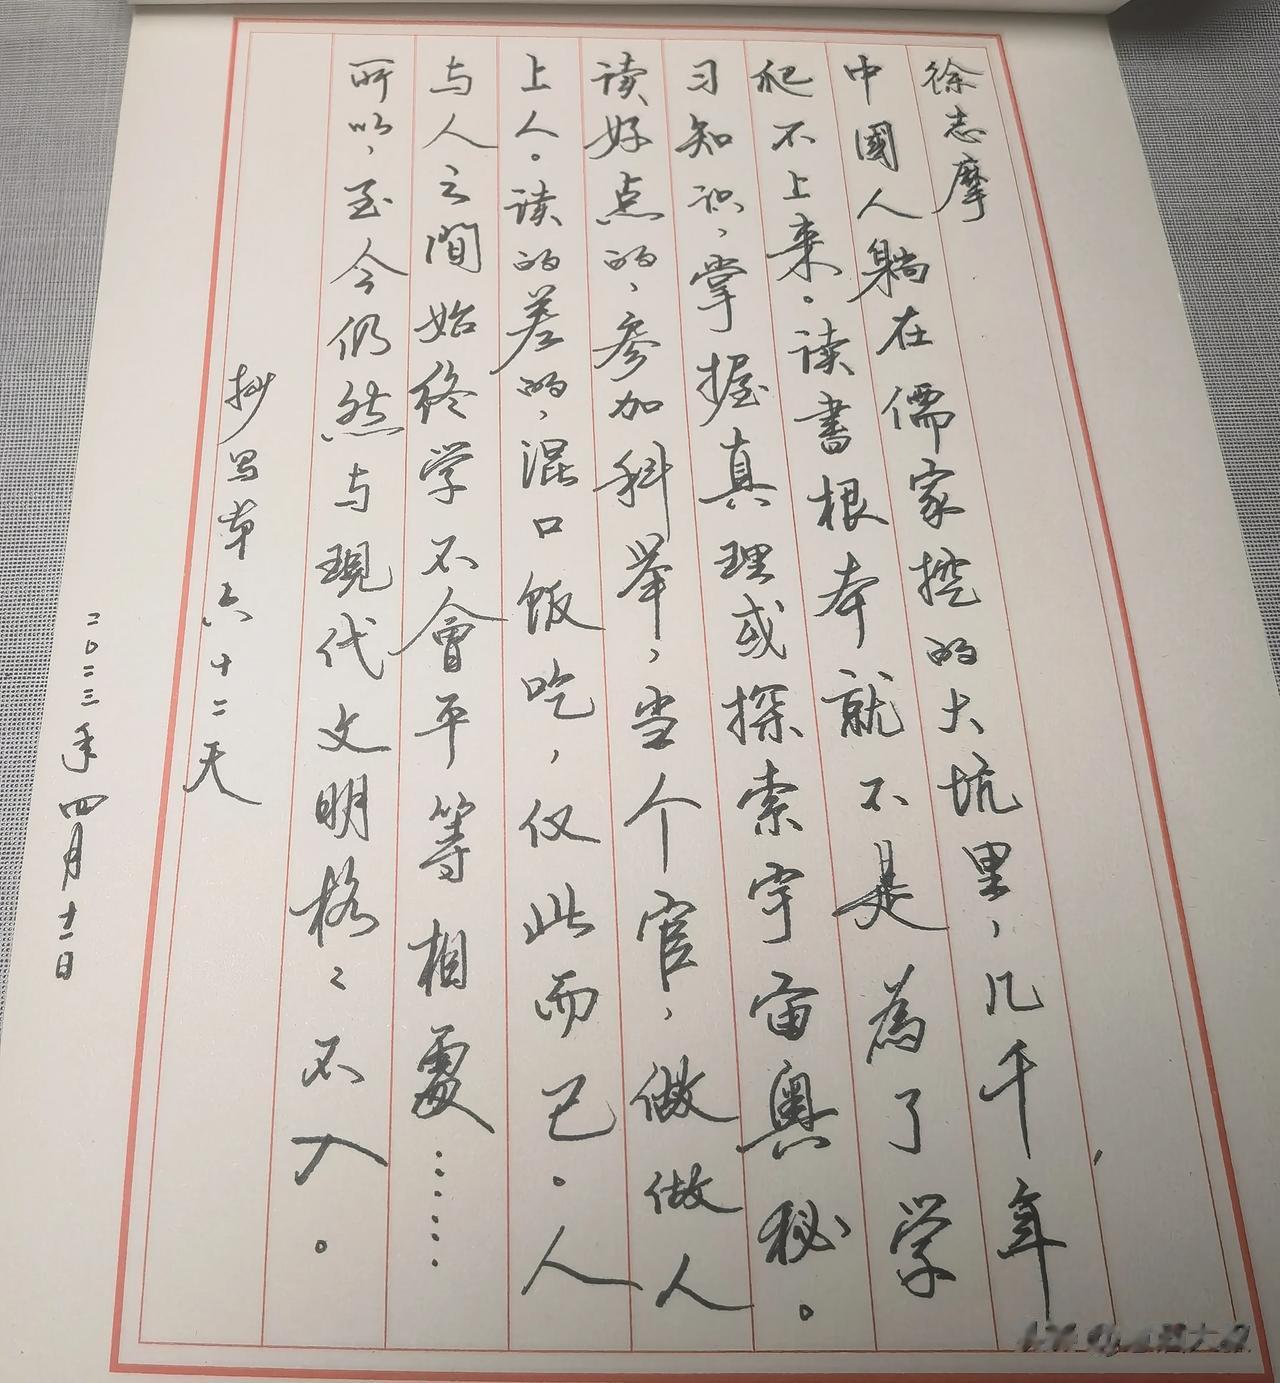 徐志摩
中國人躺在儒家挖的大坑里，几千年
爬不上来。读書根本就不是為了学
习知识，掌握真理或探索宇宙奥秘。
读好点的，参加科举，当个官，做做人
上人。读的差的，混口饭吃，仅此而已。人
与人之間始终学不會平等相處……
所以，至今仍然与現代文明格〻不入。
抄写六十二天
二〇二三年四月十二日